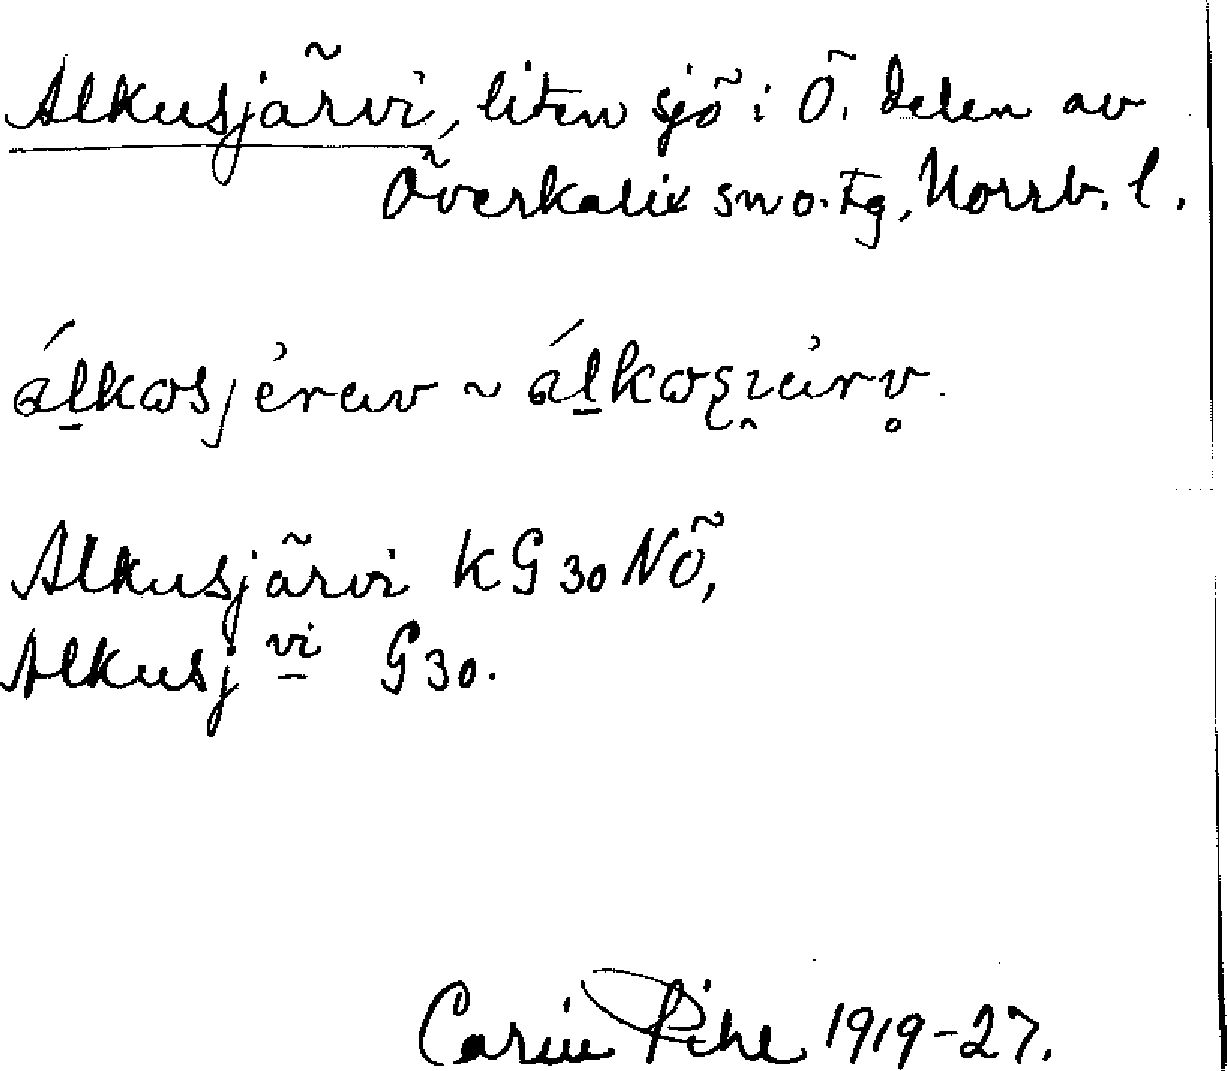 Alkusjärvi, liten sjö i Ö. delen av
Överkalix sn o. tg, Norrb. l.
álkωsjèrav ~ álkωşı̯àrv̥.
Alkusjärvi KG30NÖ,
Alkusj vi G30.
Carin Pihl 1919-27.